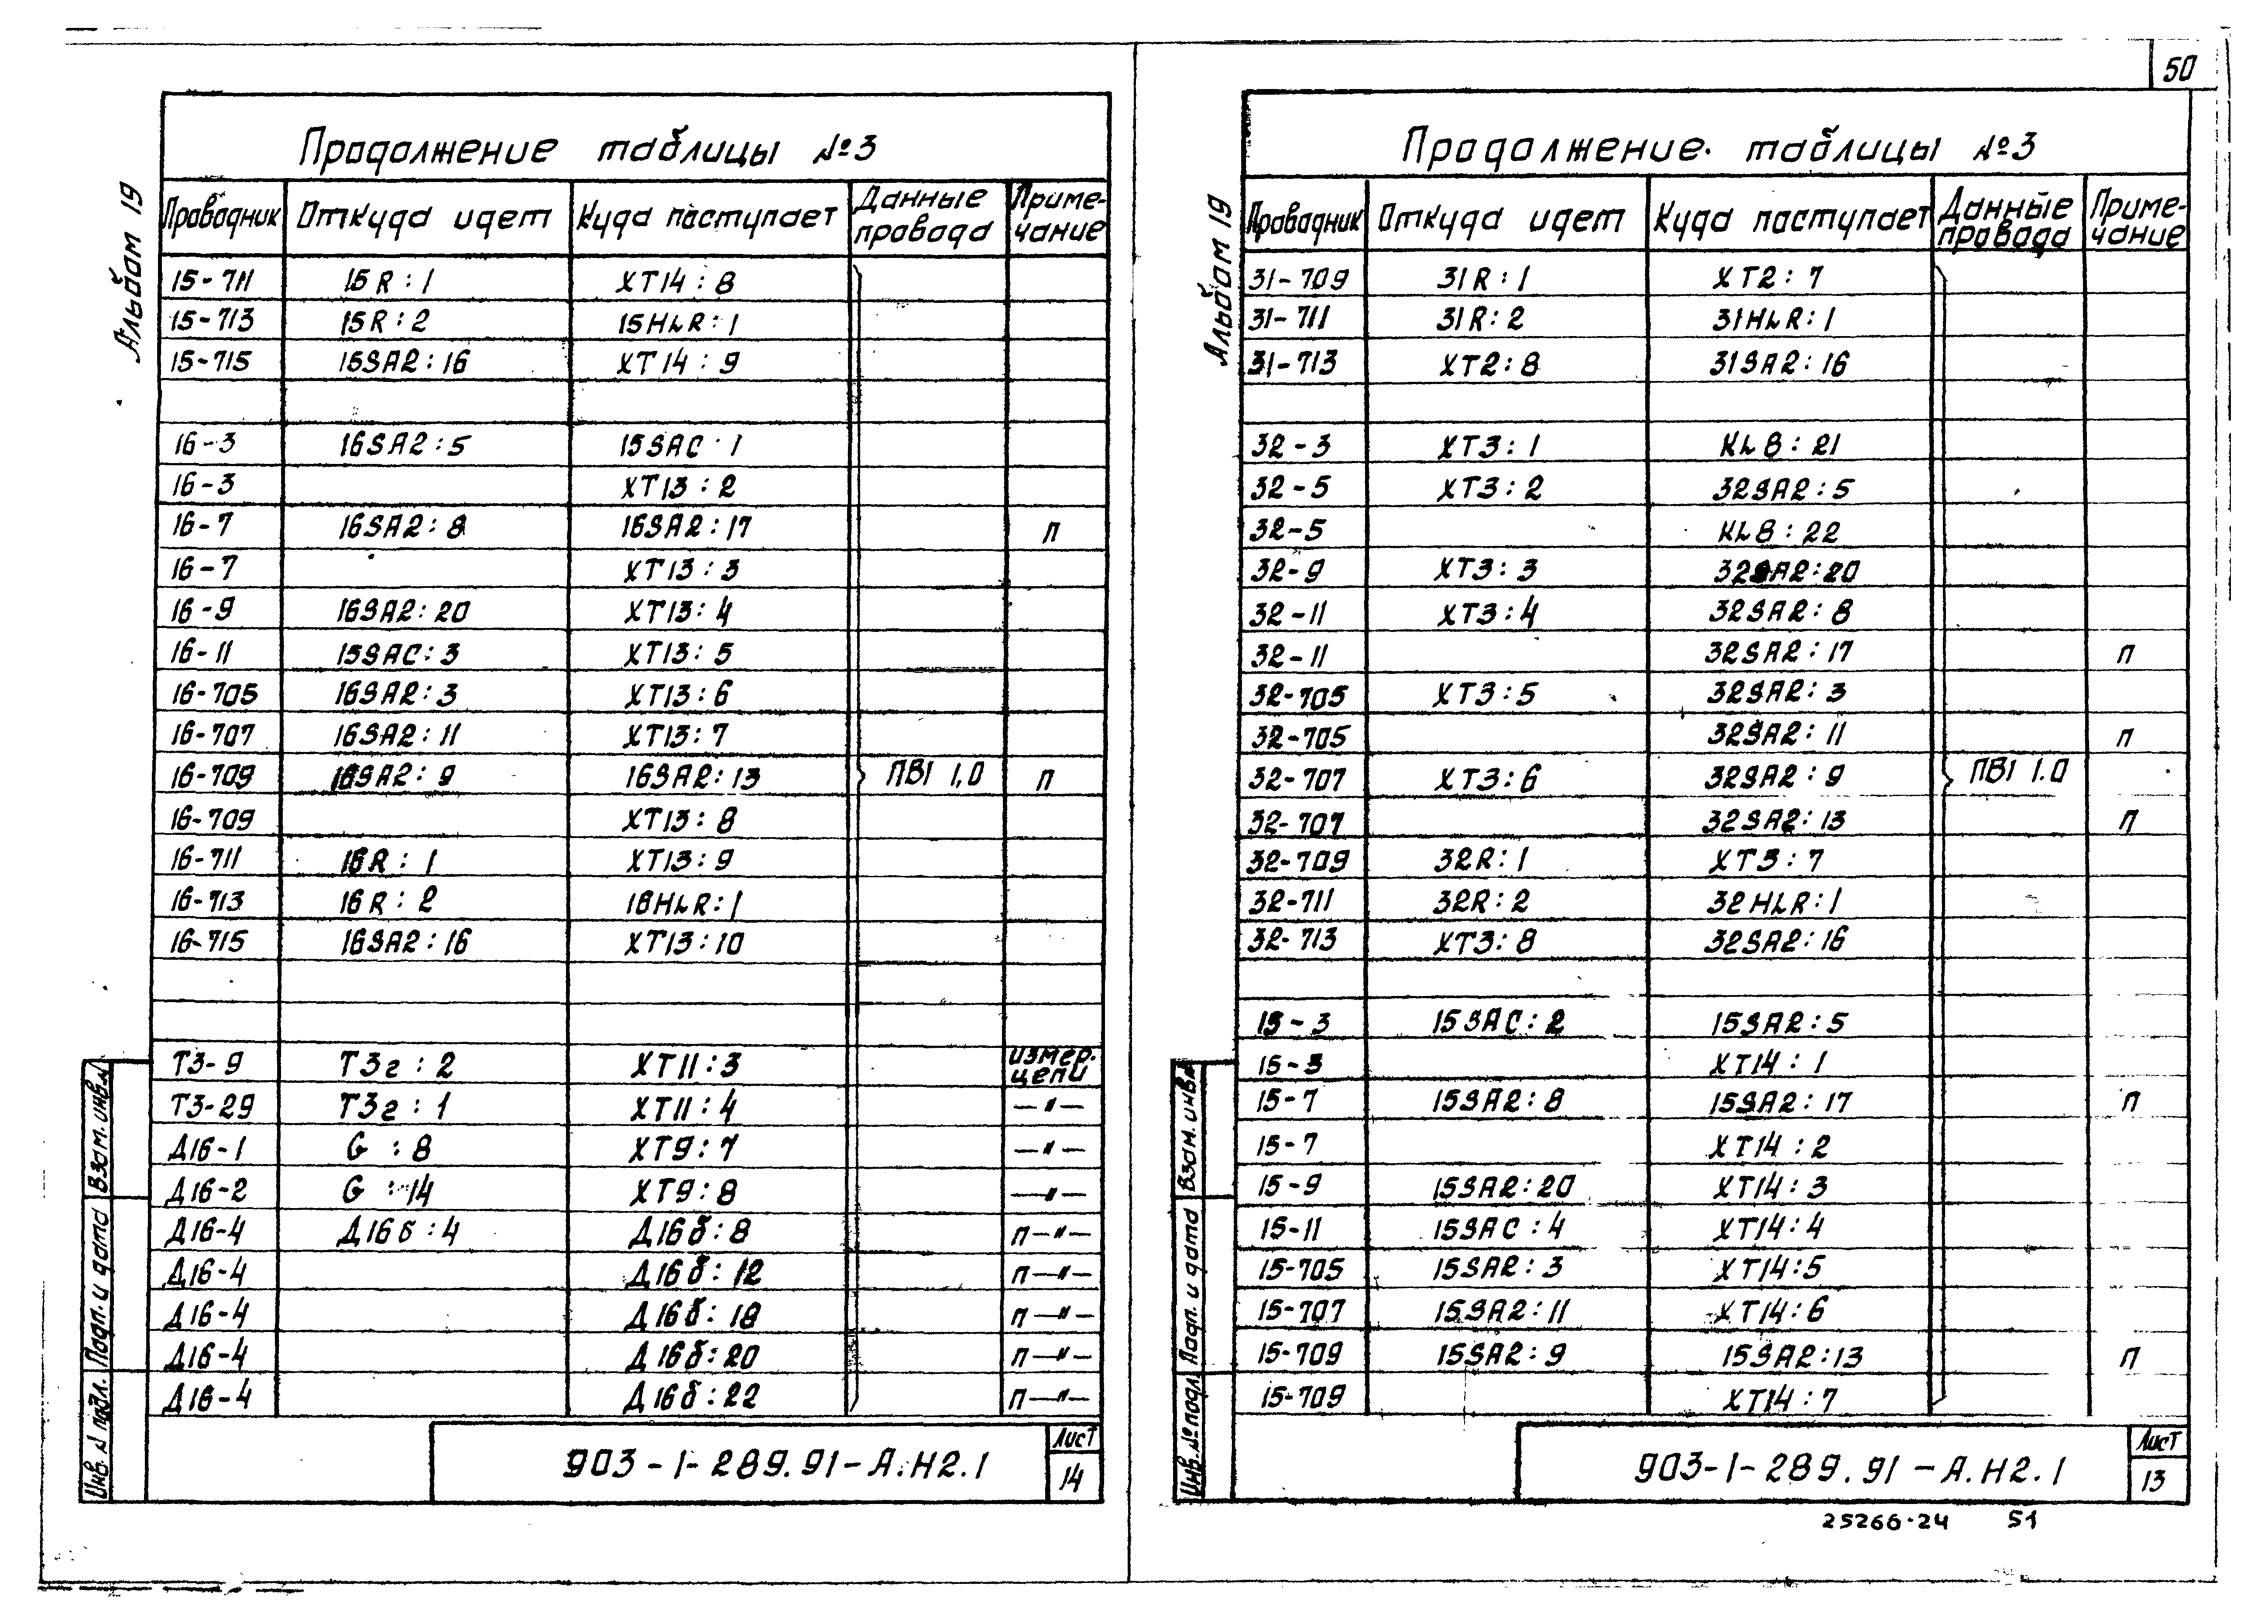 50
Альбом 19
Продолжение таблицы №3
Проводник Откуда идет Куда поступает Данные провода Приме-чание
15-711 15R:1 XT14:8
15-713 15R:2 15HLR:1
15-715 15SA2:16 XT14:9
16-3 16SA2:5 15SAC:1
16-3 XT13:2
16-7 16SA2:8 16SA2:17 п
16-7 XT13:3
16-9 16SA2:20 XT13:4
16-11 15SAC:3 XT13:5
16-705 16SA2:3 XT13:6
16-707 16SA2:11 XT13:7
16-709 16SA2:9 16SA2:13 ПВ1 1,0 п
16-709 XT13:8
16-711 16R:1 XT13:9
16-713 16R:2 16HLR:1
16-715 16SA2:16 XT13:10
Т3-9 Т3г:2 XT11:3 измер. цепи
Т3-29 Т3г:1 XT11:4 —"—
Д16-1 G :8 XT9:7 —"—
Д16-2 G :14 XT9:8 —"—
Д16-4 Д16б:4 Д16б:8 п—"—
Д16-4 Д16б:12 п—"—
Д16-4 Д16б:18 п—"—
Д16-4 Д16б:20 п—"—
Д16-4 Д16б:22 п—"—
Инв. N подл. Подп. и дата Взам. инв. N
903-1-289.91-А.Н2.1
Лист
14
Альбом 19
Продолжение таблицы №3
Проводник Откуда идет Куда поступает Данные провода Приме-чание
31-709 31R:1 XT2:7
31-711 31R:2 31HLR:1
31-713 XT2:8 31SA2:16
32-3 XT3:1 KL8:21
32-5 XT3:2 32SA2:5
32-5 KL8:22
32-9 XT3:3 32SA2:20
32-11 XT3:4 32SA2:8
32-11 32SA2:17 п
32-705 XT3:5 32SA2:3
32-705 32SA2:11 п
32-707 XT3:6 32SA2:9 ПВ1 1.0
32-707 32SA2:13 п
32-709 32R:1 XT3:7
32-711 32R:2 32HLR:1
32-713 XT3:8 32SA2:16
15-3 15SAC:2 15SA2:5
15-3 XT14:1
15-7 15SA2:8 15SA2:17 п
15-7 XT14:2
15-9 15SA2:20 XT14:3
15-11 15SAC:4 XT14:4
15-705 15SA2:3 XT14:5
15-707 15SA2:11 XT14:6
15-709 15SA2:9 15SA2:13 п
15-709 XT14:7
Инв. № подл. Подп. и дата Взам. инв. №
903-1-289.91-А.Н2.1
Лист
13
25266-24 51